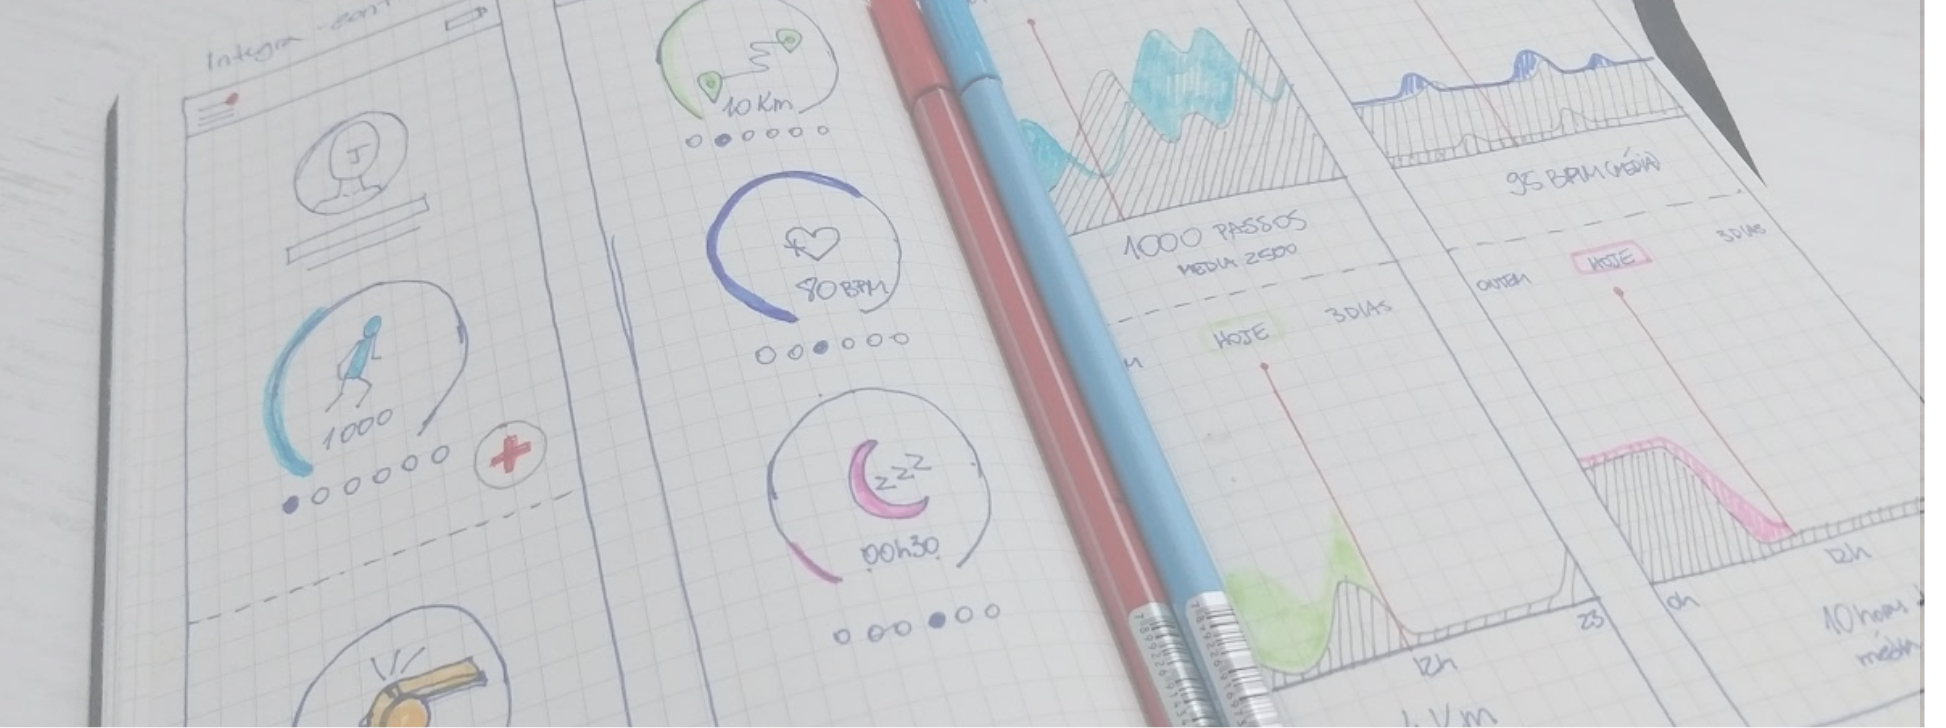 Integra -
J
1000
10 Km
80 BPM
zzz
00h30
1000 PASSOS
MEDIA 2500
HOJE
3 DIAS
12h
23
Km
95 BPM (MÉDIA)
ONTEM
HOJE
3 DIAS
0h
12h
10 horas
média